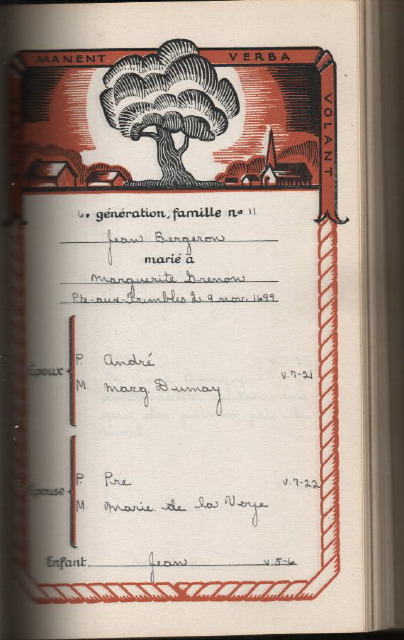 MANENT VERBA VOLANT
6e génération, famille no 11
Jean Bergeron
marié à
Marguerite Grenon
Pte-aux-Trembles Q. 9 nov. 1699
Époux
P. André v.7-21
M. Marg. Dumay
Épouse
P. Pre v.7-22
M. Marie de la Voye
Enfant Jean v.5-6